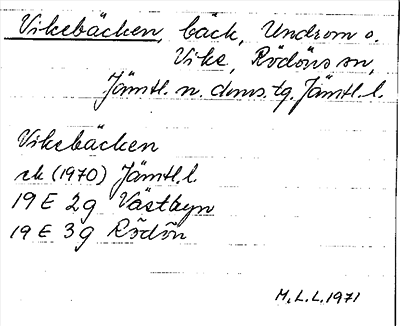 Vikebäcken, bäck, Undrom o.
Vike, Rödöns sn,
Jämtl. n. doms. tg. Jämtl. l.
Vikebäcken
ek (1970) Jämtl. l.
19 E 2g Västbyn
19 E 3g Rödön
M.L.L. 1971